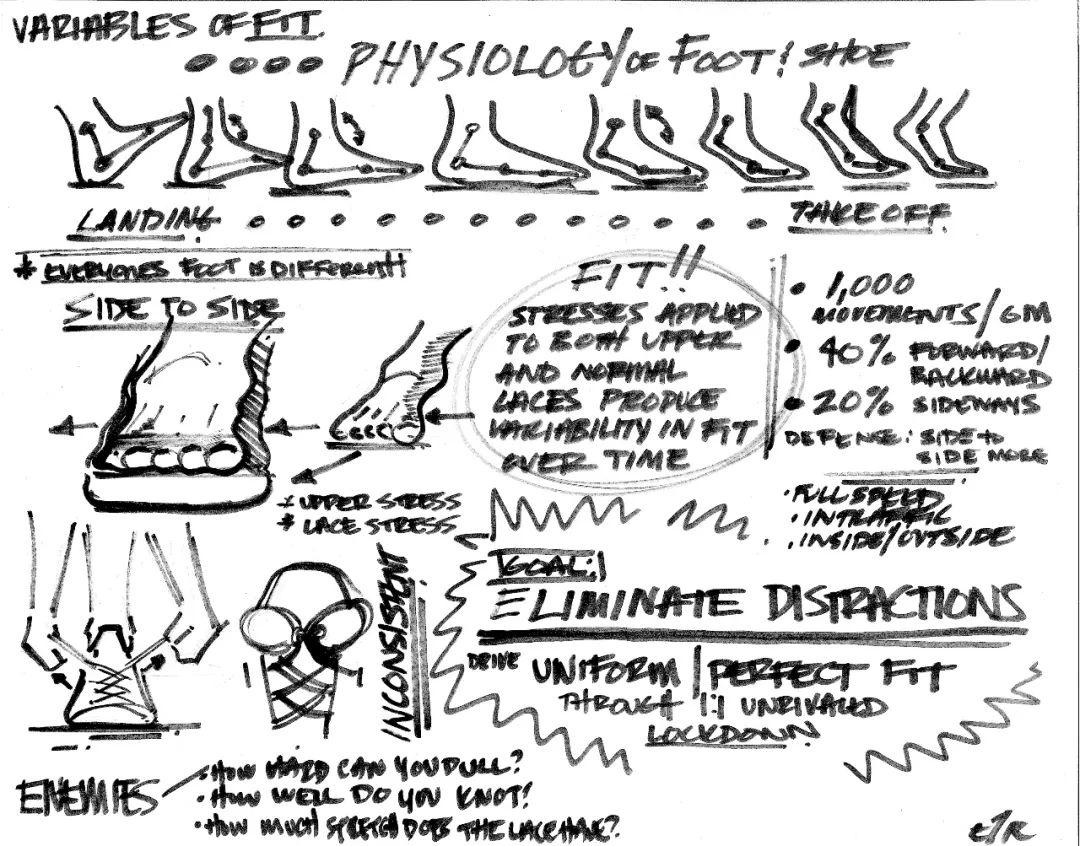 VARIABLES OF FIT.
PHYSIOLOGY OF FOOT & SHOE
LANDING
TAKE OFF
* EVERYONES FOOT IS DIFFERENT!
SIDE TO SIDE
* UPPER STRESS
* LACE STRESS
FIT!!
STRESSES APPLIED
TO BOTH UPPER
AND NORMAL
LACES PRODUCE
VARIABILITY IN FIT
OVER TIME
• 1,000
MOVEMENTS/GM
• 40% FORWARD/
BACKWARD
• 20% SIDEWAYS
DEFENSE: SIDE TO
SIDE MORE
• FULL SPEED
• IN TRAFFIC
• INSIDE/OUTSIDE
INCONSISTENT
GOAL:
ELIMINATE DISTRACTIONS
DRIVE UNIFORM/PERFECT FIT
THROUGH 1:1 UNRIVALED
LOCKDOWN
ENEMIES
• HOW HARD CAN YOU PULL?
• HOW WELL DO YOU KNOT?
• HOW MUCH STRETCH DOES THE LACE HAVE?